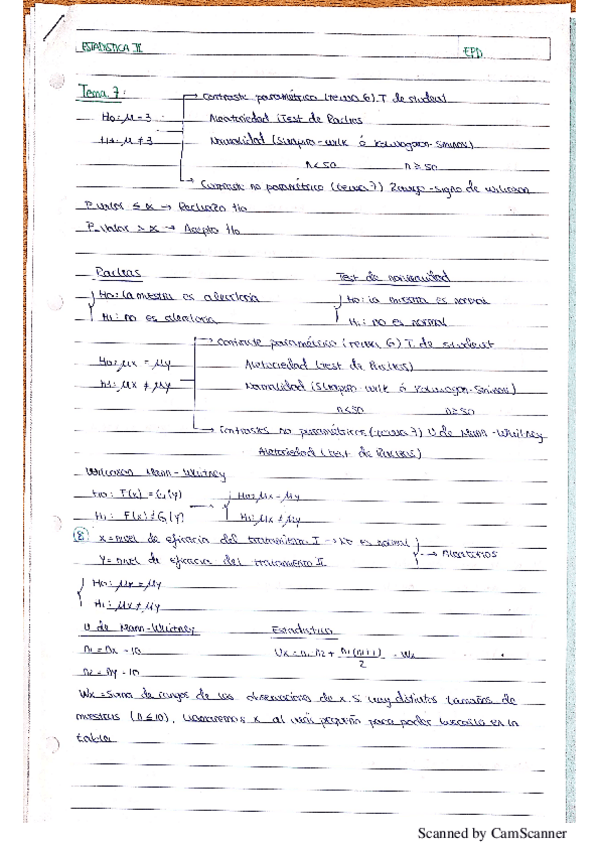 ESTADISTICA II EPD
Tema 7:
Contraste paramétrico (tema 6). T de student
H0: μ = 3 Aleatoriedad (Test de Rachas
H1: μ ≠ 3 Normalidad (Shapiro-Wilk ó Kolmogorov-Smirnov)
n<50 n≥50
Contraste no paramétrico (tema 7) Rango-signo de Wilcoxon
P-valor ≤ α → Rechazo H0
P-valor > α → Acepto H0
Rachas Test de normalidad
H0: la muestra es aleatoria H0: la muestra es normal
H1: no es aleatoria H1: no es normal
Contraste paramétrico (tema 6) T. de student
H0: μx = μy Aleatoriedad (test de Rachas)
H1: μx ≠ μy Normalidad (Shapiro-Wilk ó Kolmogorov-Smirnov)
n<50 n≥50
Contrastes no paramétricos (tema 7) U de Mann-Whitney
Aleatoriedad (test de Rachas)
Wilcoxon Mann-Whitney
H0: F(x) = G(y) H0: μx = μy
H1: F(x) ≠ G(y) H1: μx ≠ μy
8 X = nivel de eficacia del tratamiento I → No es normal
Y = nivel de eficacia del tratamiento II → Aleatorios
H0: μx = μy
H1: μx ≠ μy
U de Mann-Whitney Estadístico
n1 = nx = 10 Ux = n1 n2 + n1(n1+1)/2 - Wx
n2 = ny = 10
Wx = Suma de rangos de las observaciones de x. Si hay distintos tamaños de
muestras (n≤10), llamaremos x al más pequeño para poder buscarla en la
tabla
Scanned by CamScanner